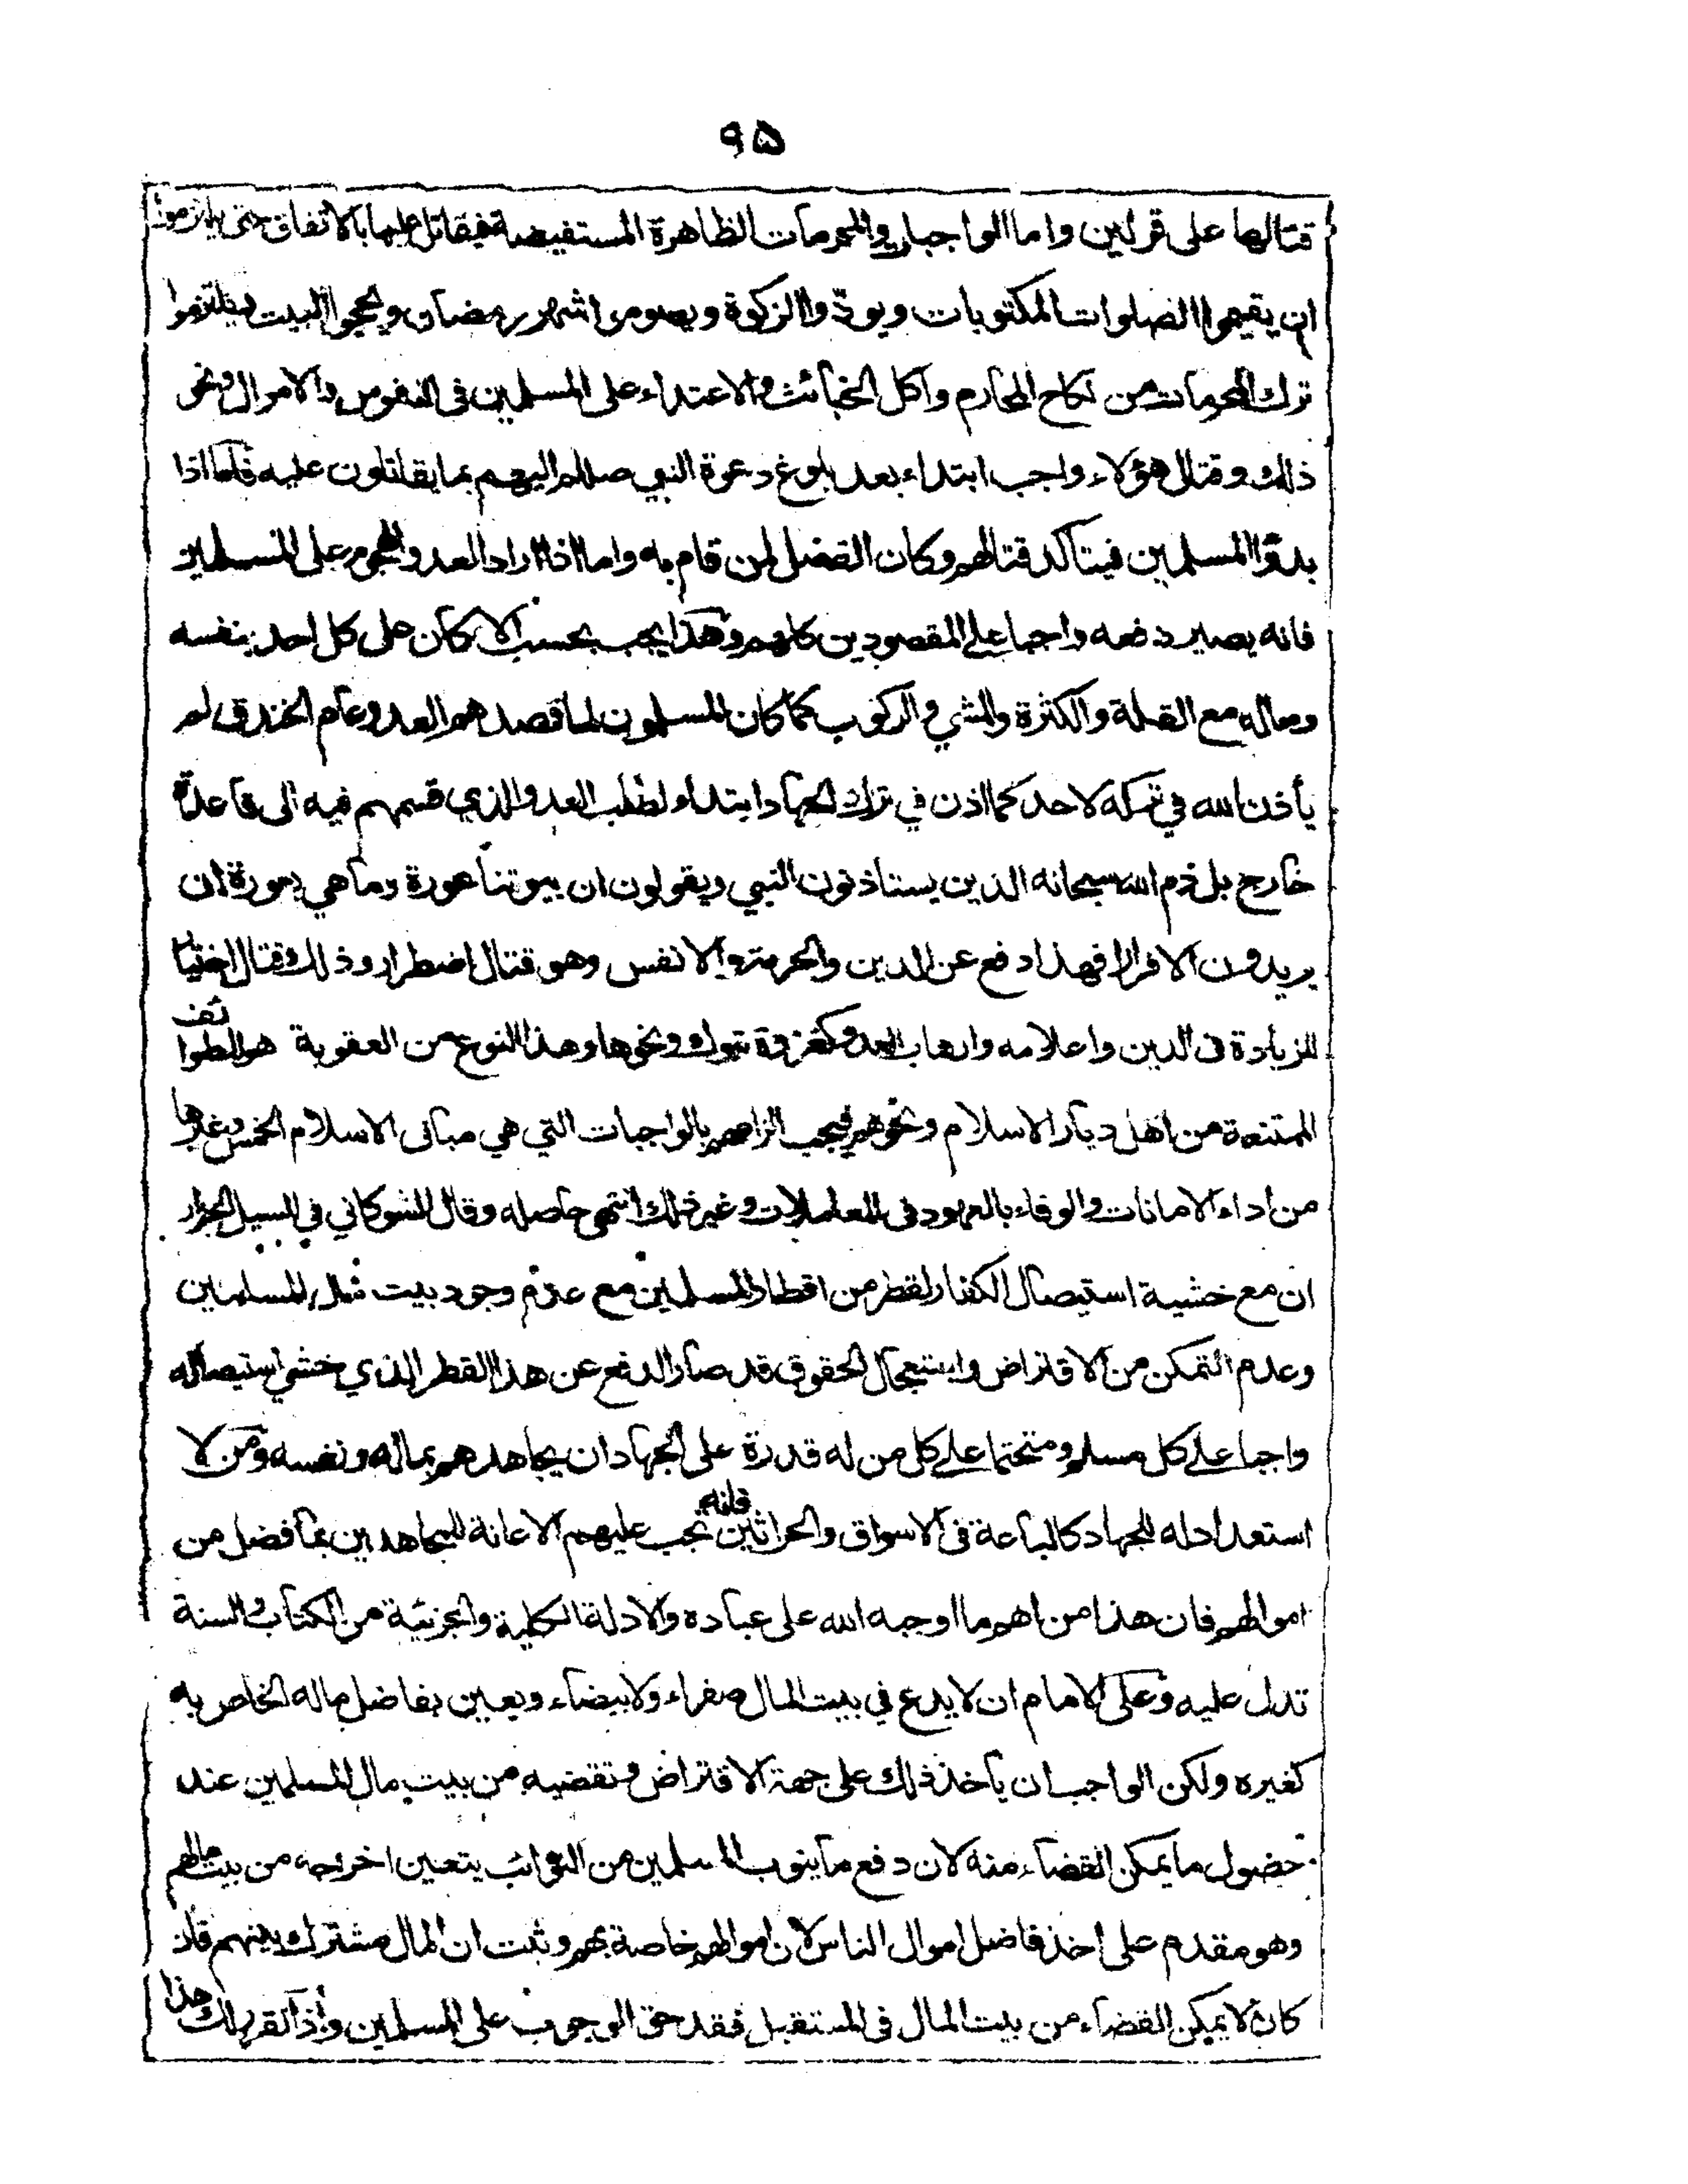 ٩۵
قتالها على قولين واما الواجبات والمحرمات الظاهرة المستفيضة فيقاتل عليها بالاتفاق حتى يلتزموا
ان يقيموا الصلوات المكتوبات ويودّوا الزكوة ويصوموا شهر رمضان ويحجوا البيت ويلتزموا
ترك المحرمات من نكاح المحارم واكل الخبائث والاعتداء على المسلمين فى النفوس والاموال ونحو
ذلك وقتال هؤلاء واجب ابتداء بعد بلوغ دعوة النبي صللم اليهم بما يقاتلون عليه فاما اذا
بدؤا المسلمين فيتاكد قتالهم وكان الفضل لمن قام به واما اذا اراد العدو الهجوم على المسلمين
فانه يصير دفعه واجبا على المقصودين كلهم وهذا يجب بحسب الامكان على كل احد بنفسه
وماله مع القلة والكثرة والمشي والركوب كما كان المسلمون لما قصدهم العدو عام الخندق لم
يأذن الله في تركه لاحد كما اذن في ترك الجهاد ابتداء لطلب العدو الذي قسمهم فيه الى قاعد و
خارج بل ذم الله سبحانه الذين يستاذنون النبي ويقولون ان بيوتنا عورة وما هي بعورة ان
يريدون الا فرارا فهذا دفع عن الدين والحرمة والانفس وهو قتال اضطرار وذلك قتال اختيار
للزيادة فى الدين واعلامه وارهاب العدو كغزوة تبوك ونحوها وهذا النوع من العقوبة هو للطوائف
الممتنعة من اهل ديار الاسلام ونحوهم فيجب الزامهم بالواجبات التي هي مبانى الاسلام الخمس وغيرها
من اداء الامانات والوفاء بالعهود فى المعاملات وغير ذلك انتهى حاصله وقال الشوكاني في السيل الجرار
ان مع خشية استيصال الكفار لقطر من اقطار المسلمين مع عدم وجود بيت مال للمسلمين
وعدم التمكن من الاقتراض واستعجال الحقوق قد صار الدفع عن هذا القطر الذي خشي استيصاله
واجبا على كل مسلم ومتحتما على كل من له قدرة على الجهاد ان يجاهدهم بماله ونفسه ومن لا
استعداد له للجهاد كالباعة فى الاسواق والحراثين فانه تجب عليهم الاعانة للمجاهدين بما فضل من
اموالهم فان هذا من اهم ما اوجبه الله على عباده والادلة الكلية والجزئية من الكتاب والسنة
تدل عليه وعلى الامام ان لا يدع في بيت المال صفراء ولا بيضاء ويعين بفاضل ماله الخاص به
كغيره ولكن الواجب ان ياخذ ذلك على جهة الاقتراض وتقضيه من بيت مال المسلمين عند
حضول ما يمكن القضاء منه لان دفع ما ينوب المسلمين من النوائب يتعين اخراجه من بيت مالهم
وهو مقدم على اخذ فاضل اموال الناس لان اموالهم خاصة بهم وثبت ان المال مشترك بينهم فان
كان لا يمكن القضاء من بيت المال فى المستقبل فقد حق الوجوب على المسلمين واذا تقرر لك هذا